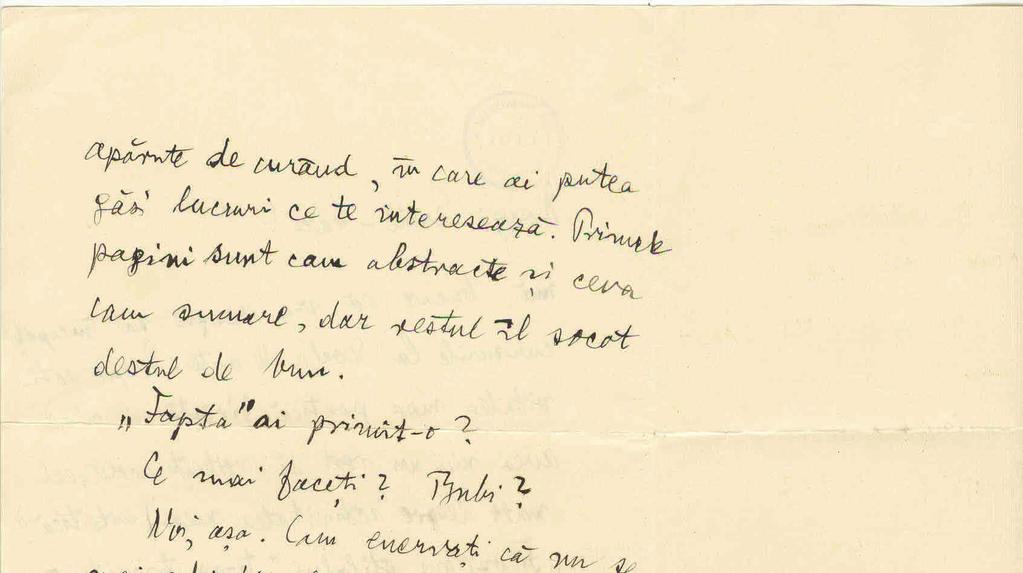 apărute de curând, în care ai putea
găsi lucruri ce te interesează. Primele
pagini sunt cam abstracte și ceva
cam sumare, dar restul îl socot
destul de bun.
„Fapta" ai primit-o?
Ce mai faceți? Bubi?
Noi, așa. Cam enervați că nu se